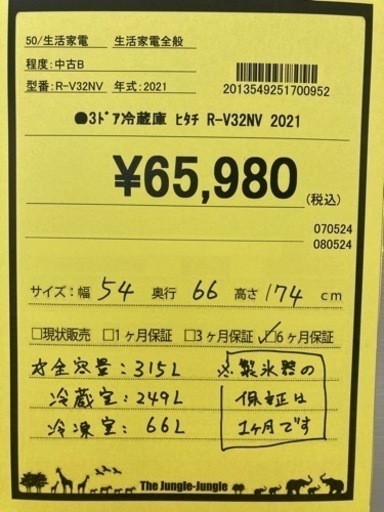 50/生活家電 生活家電全般
程度:中古B
型番:R-V32NV 年式:2021
2013549251700952
●3ﾄﾞｱ冷蔵庫 ﾋﾀﾁ R-V32NV 2021
¥65,980
(税込)
070524
080524
サイズ:幅 54 奥行 66 高さ 174 cm
□現状販売 □1ヶ月保証 □3ヶ月保証 ☑6ヶ月保証
全容量:315L
冷蔵室:249L
冷凍室:66L
※製氷器の
保証は
1ヶ月です
The Jungle-Jungle